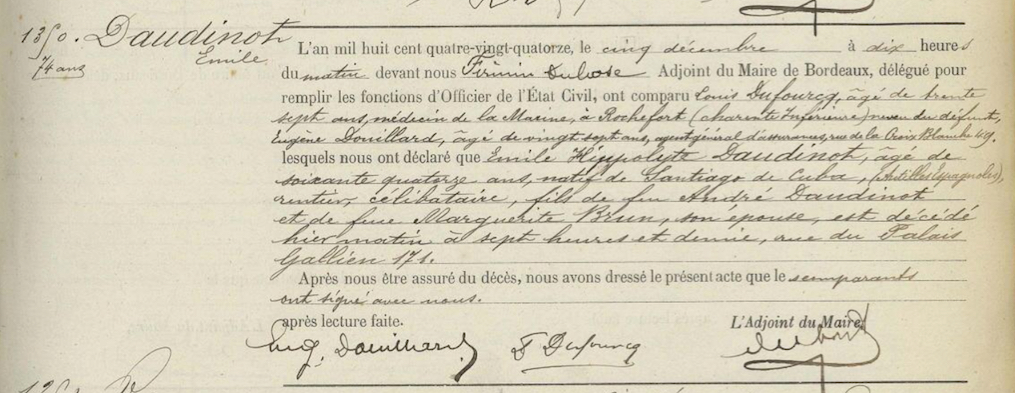 1350. Daudinot
Emile
74 ans
L'an mil huit cent quatre-vingt-quatorze, le cinq décembre à dix heures
du matin devant nous Firmin Dubose Adjoint du Maire de Bordeaux, délégué pour
remplir les fonctions d'Officier de l'État Civil, ont comparu Louis Dufourcq, âgé de trente
sept ans, médecin de la Marine, à Rochefort (charente Inférieure) neveu du défunt,
Eugène Douillard, âgé de vingt sept ans, agent général d'assurances, rue de la Croix Blanche 49.
lesquels nous ont déclaré que Emile Hippolyte Daudinot, âgé de
soixante quatorze ans, natif de Santiago de Cuba, (Antilles Espagnoles),
rentier, célibataire, fils de feu André Daudinot
et de feue Marguerite Brun, son épouse, est décédé
hier matin à sept heures et demie, rue du Palais
Gallien 171.
Après nous être assuré du décès, nous avons dressé le présent acte que les comparants
ont signé avec nous.
après lecture faite.
L'Adjoint du Maire,
Eug. Douillard
Dufourcq